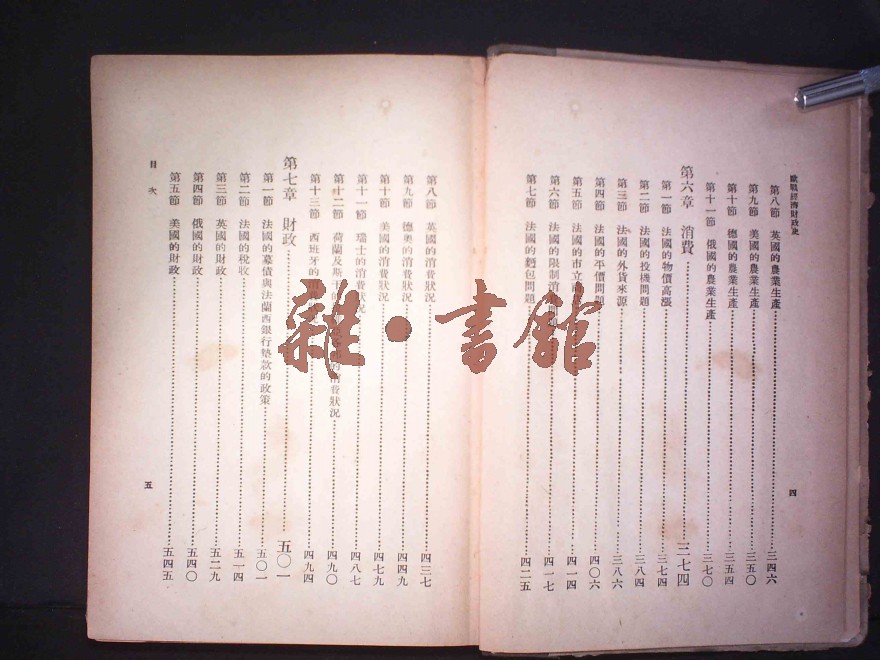 歐戰經濟財政史
第八節 英國的農業生產 三四六
第九節 美國的農業生產 三五〇
第十節 德國的農業生產 三五四
第十一節 俄國的農業生產 三七〇
第六章 消費 三七四
第一節 法國的物價高漲 三七四
第二節 法國的投機問題 三八四
第三節 法國的外貨來源 三八六
第四節 法國的平價問題 四〇六
第五節 法國的市立商 四一四
第六節 法國的限制消 四一七
第七節 法國的麵包問題 四二五
四
第八節 英國的消費狀況 四三七
第九節 德奧的消費狀況 四四九
第十節 美國的消費狀況 四七九
第十一節 瑞士的消費狀況 四八七
第十二節 荷蘭及斯 的消費狀況 四九〇
第十三節 西班牙的消 四九四
第七章 財政 五〇一
第一節 法國的募債與法蘭西銀行墊款的政策 五〇一
第二節 法國的稅收 五一四
第三節 英國的財政 五二九
第四節 俄國的財政 五四〇
第五節 美國的財政 五四五
目次
五
雜·書館